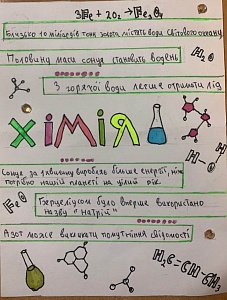 3Fe + 2O₂ → Fe₃O₄
Близько 10 мільярдів тонн золота містять води Світового океану
Половину маси сонця становить водень
H₂O
З гарячої води легше отримати лід
ХІМІЯ
H-O-H
Сонце за хвилину виробляє більше енергії, ніж
потрібно нашій планеті на цілий рік
FeO
Берцеліусом було вперше використано
назву "натрій"
Азот може викликати помутніння свідомості
H₃C-CH-CH₃